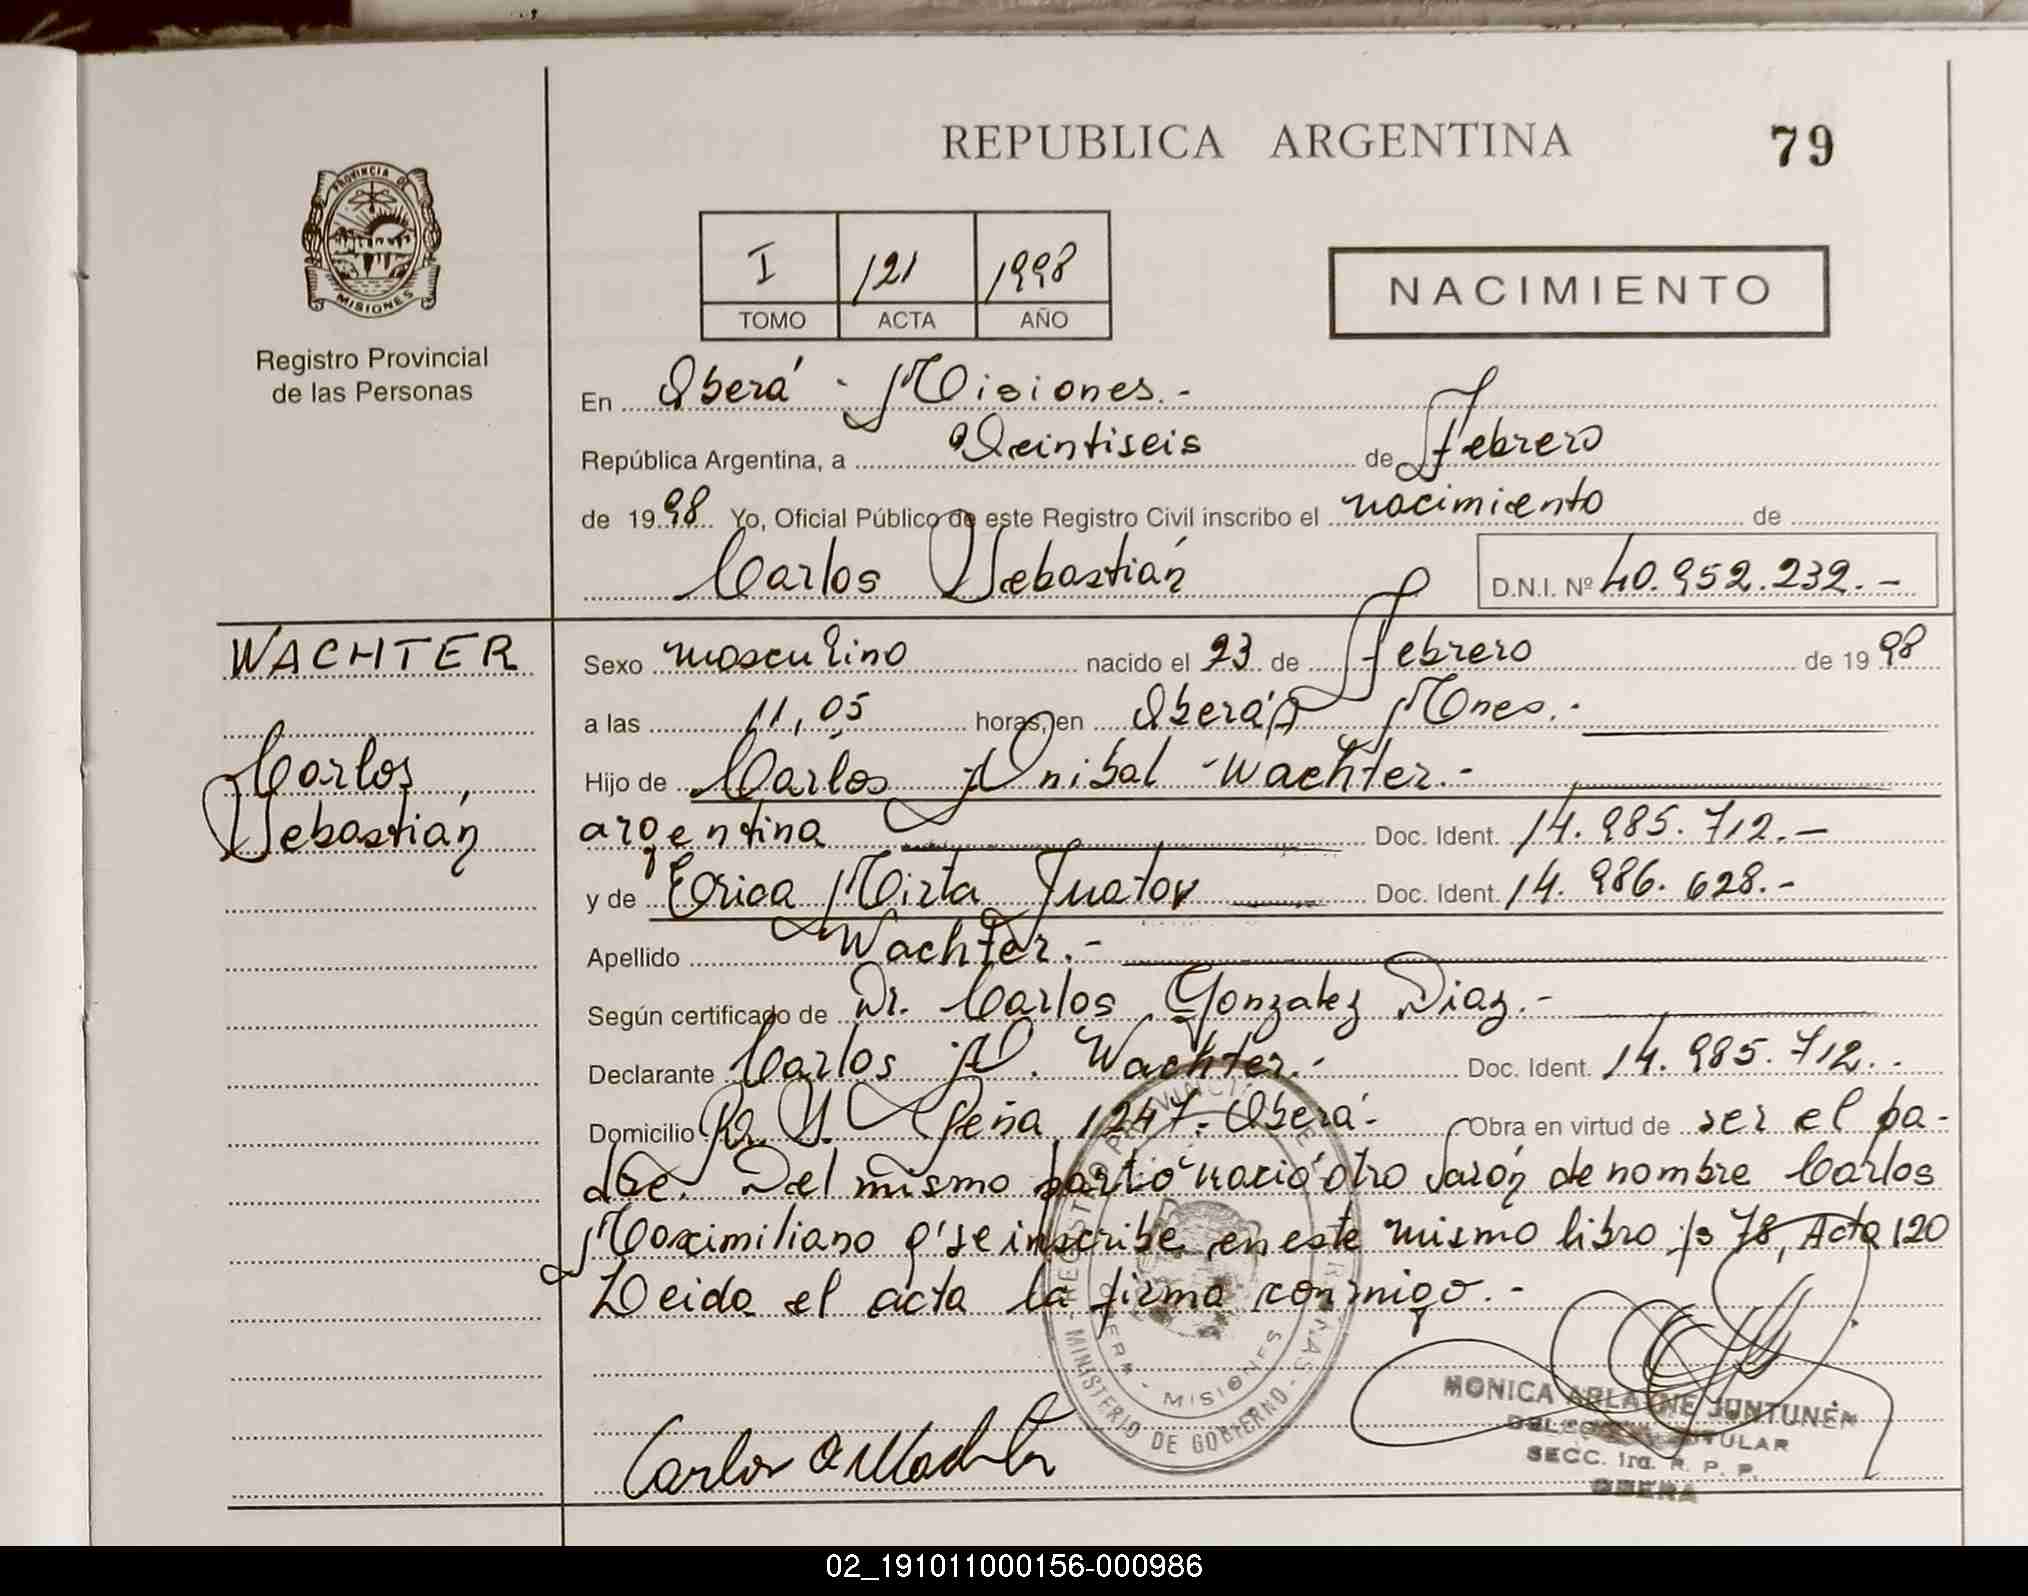 REPUBLICA ARGENTINA
79
PROVINCIA DE
MISIONES
Registro Provincial
de las Personas
I 121 1998
TOMO ACTA AÑO
NACIMIENTO
En Oberá - Misiones.-
República Argentina, a Veintiseis de Febrero
de 1998 Yo, Oficial Público de este Registro Civil inscribo el nacimiento de
Carlos Sebastián D.N.I. Nº 40.952.232.-
WACHTER
Carlos
Sebastián
Sexo masculino nacido el 23 de Febrero de 1998
a las 11,05 horas, en Oberá, Mnes.-
Hijo de Carlos Anibal Wachter.-
argentina Doc. Ident. 14.985.712.-
y de Erica Mirta Doc. Ident. 14.986.628.-
Apellido Wachter.-
Según certificado de Dr. Carlos Gonzalez Diaz.-
Declarante Carlos A. Wachter.- Doc. Ident. 14.985.712.-
Domicilio R. S. Peña 1247- Oberá- Obra en virtud de ser el pa-
dre. Del mismo parto nació otro varón de nombre Carlos
Maximiliano q' se inscribe en este mismo libro fs 78, Acta 120
Leida el acta la firma conmigo.-
MINISTERIO DE GOBIERNO
MISIONES
Carlos A Wachter
MONICA ARLAINE JUNTUNEN
TITULAR
SECC. 1ra. R. P. P.
OBERA
02_191011000156-000986